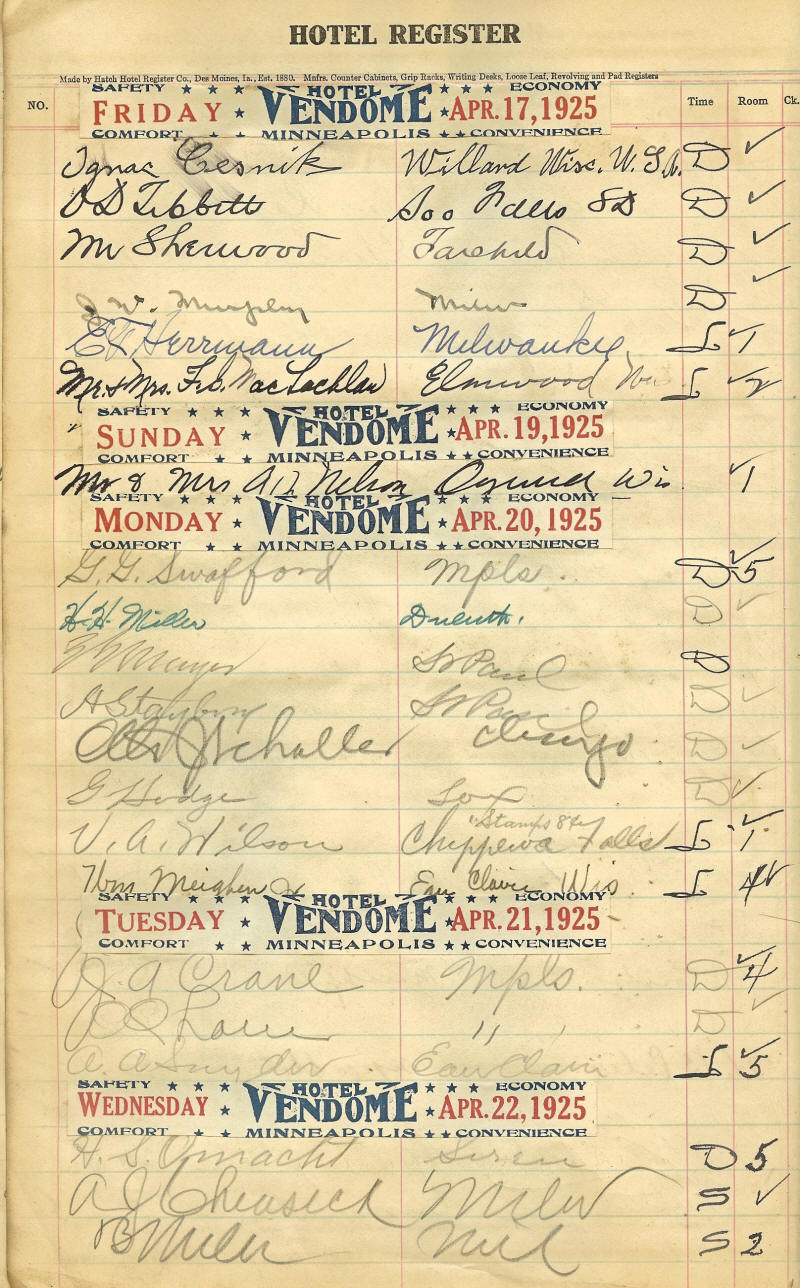 HOTEL REGISTER
Made by Hatch Hotel Register Co., Des Moines, Ia., Est. 1880. Mnfrs. Counter Cabinets, Grip Racks, Writing Desks, Loose Leaf, Revolving and Pad Registers
NO. Time Room Ck.
SAFETY ★ ★ ★ HOTEL ★ ★ ★ ECONOMY
FRIDAY ★ VENDOME ★ APR. 17, 1925
COMFORT ★ ★ MINNEAPOLIS ★ ★ CONVENIENCE
Ignac Cesnik Willard Wisc. U.S.A. D ✓
O D Tibbitt Soo Falls SD D ✓
Mr Sherwood D ✓
J. W. Murphy Milw D ✓
Herrmann Milwaukee L ✓1
Mr. & Mrs. MacLachlan Elmwood L ✓2
SAFETY ★ ★ ★ HOTEL ★ ★ ★ ECONOMY
SUNDAY ★ VENDOME ★ APR. 19, 1925
COMFORT ★ ★ MINNEAPOLIS ★ ★ CONVENIENCE
Mr & Mrs Nelson Wis ✓1
SAFETY ★ ★ ★ HOTEL ★ ★ ★ ECONOMY
MONDAY ★ VENDOME ★ APR. 20, 1925
COMFORT ★ ★ MINNEAPOLIS ★ ★ CONVENIENCE
G. G. Swafford Mpls. D ✓5
H. H. Miller Duluth. D ✓
St Paul D
A St Paul D ✓
Schaller Chicago D ✓
G Hodge Soo D ✓
"Stamps
V. A. Wilson Chippewa Falls L ✓1
Wm Meighen Jr Eau Claire Wis. L 4✓
SAFETY ★ ★ ★ HOTEL ★ ★ ★ ECONOMY
TUESDAY ★ VENDOME ★ APR. 21, 1925
COMFORT ★ ★ MINNEAPOLIS ★ ★ CONVENIENCE
J. A Crane Mpls. D ✓4
" D ✓
A. A Snyder Eau Claire L ✓5
SAFETY ★ ★ ★ HOTEL ★ ★ ★ ECONOMY
WEDNESDAY ★ VENDOME ★ APR. 22, 1925
COMFORT ★ ★ MINNEAPOLIS ★ ★ CONVENIENCE
H. S. Omacht Siren D 5
A J Milw S ✓
B Miller Mil S 2